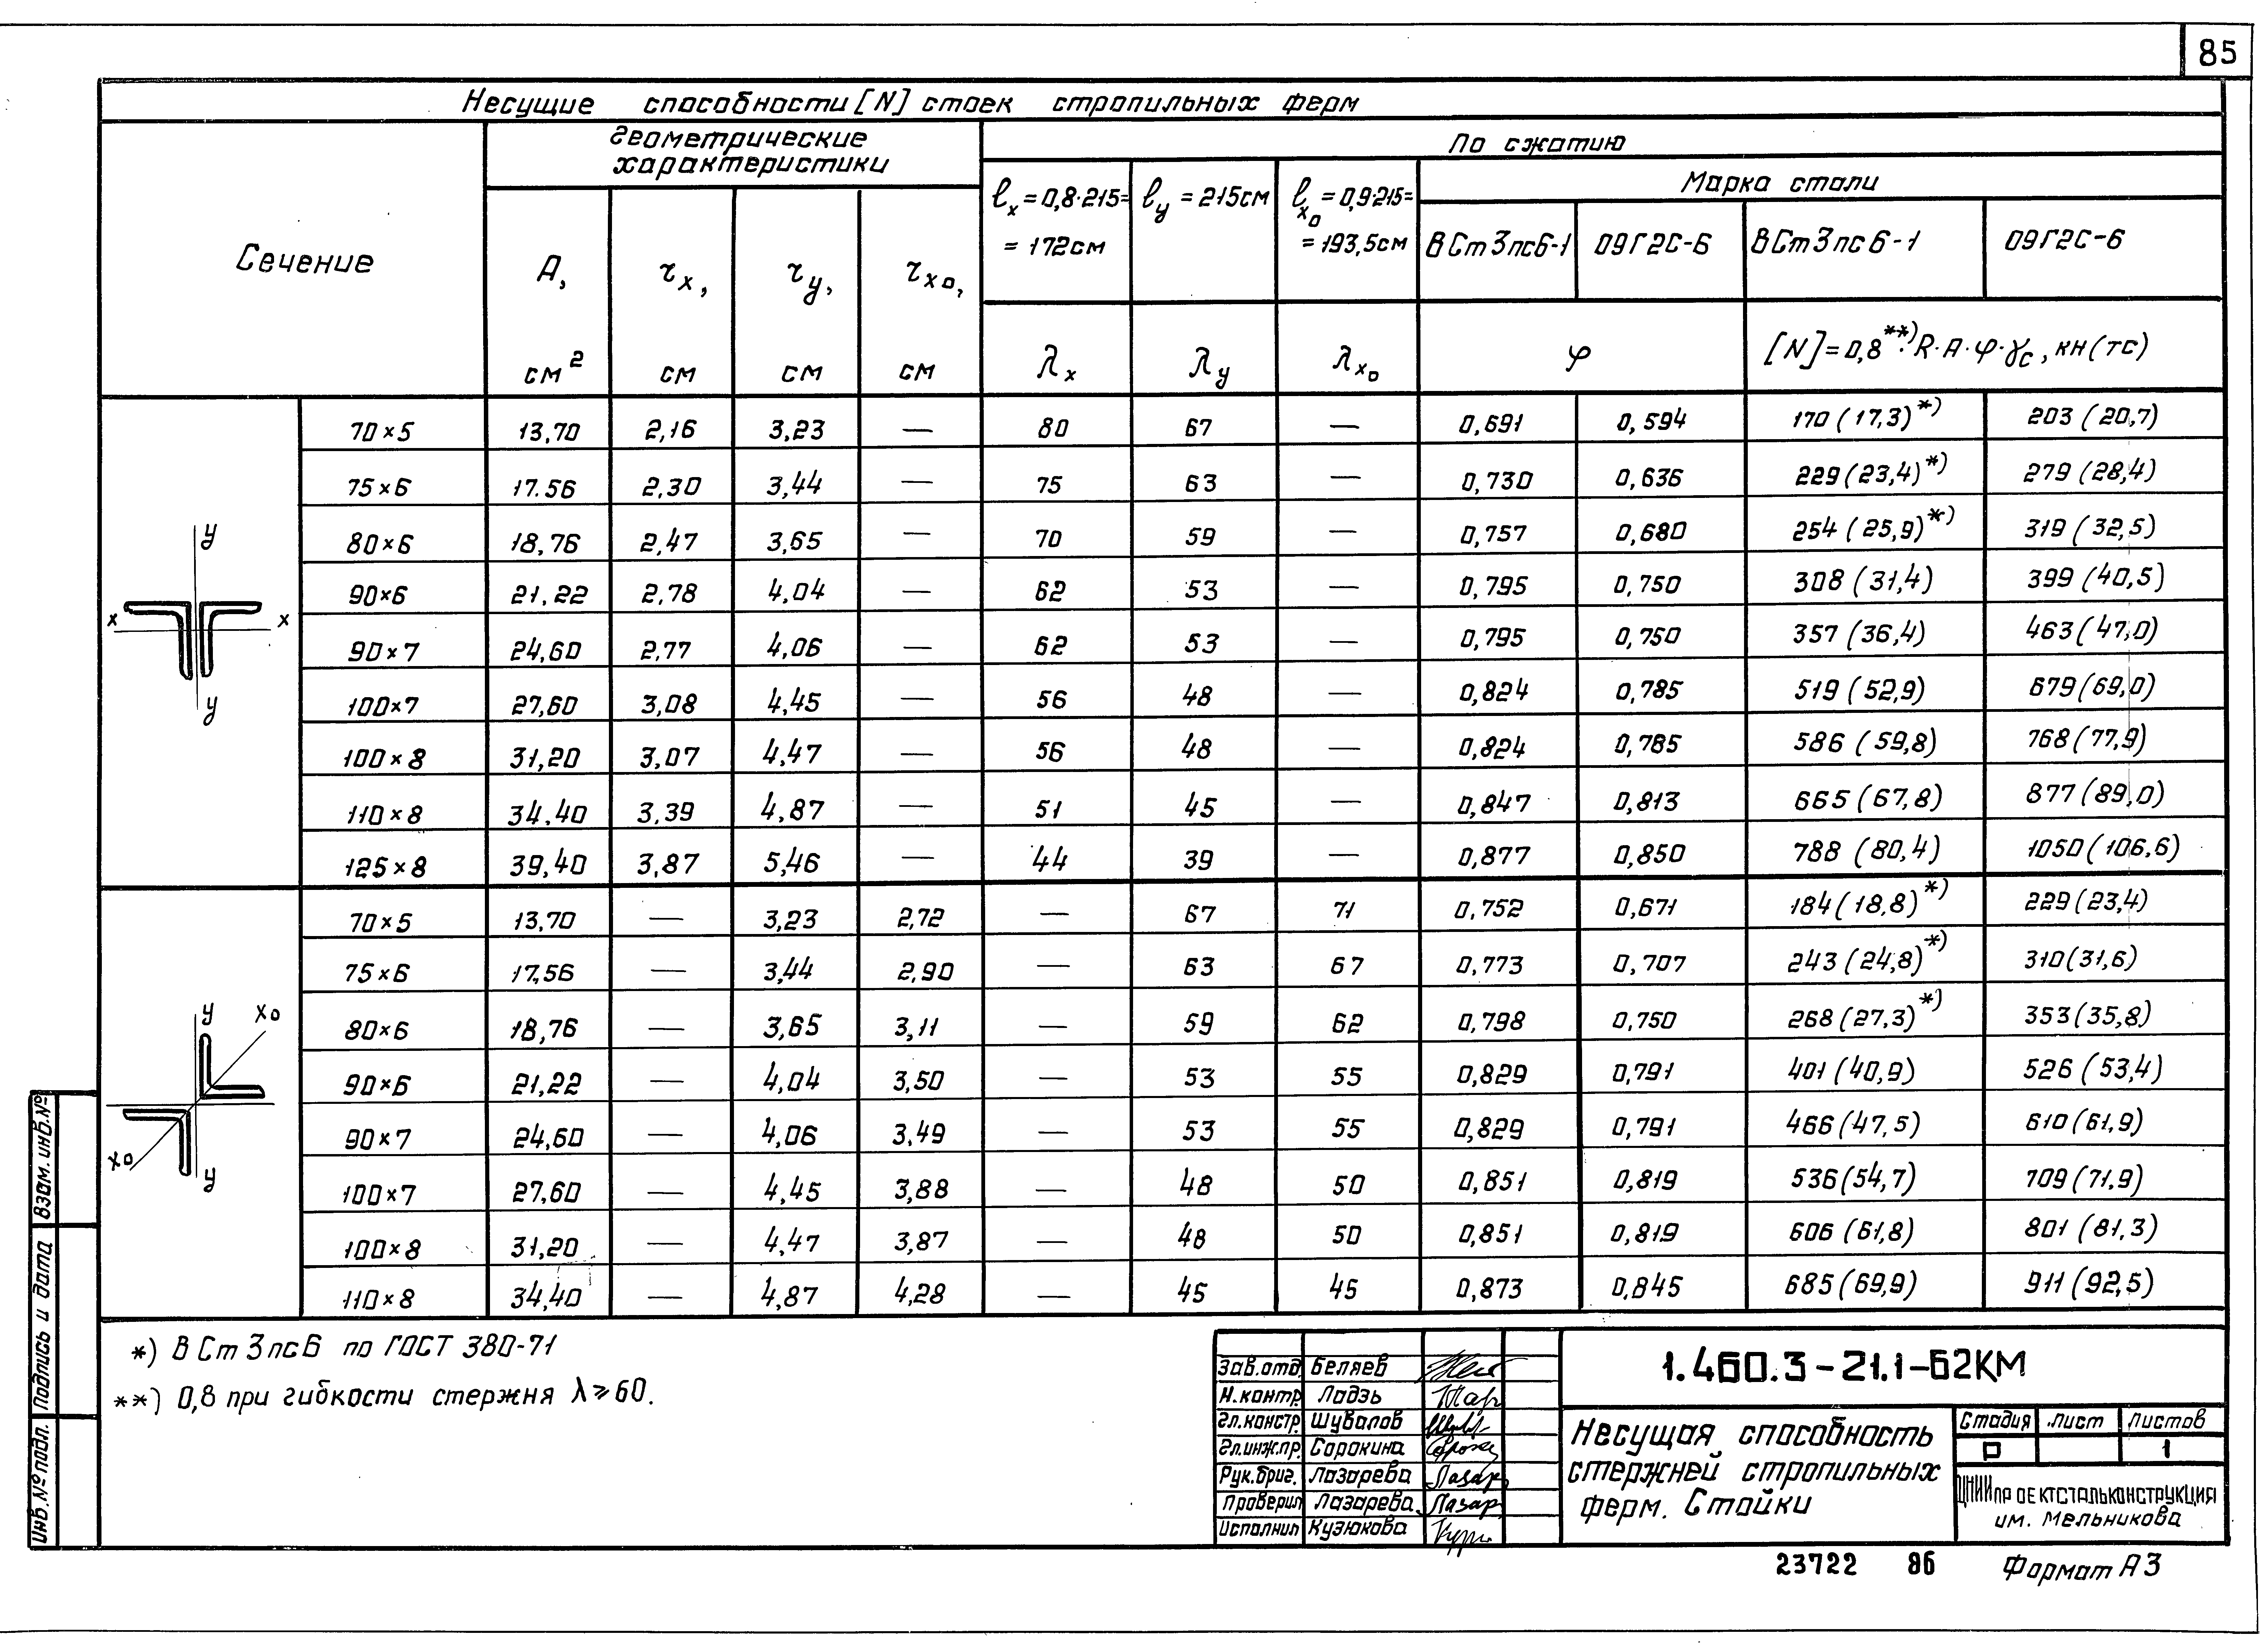 85
Несущие способности [N] стоек стропильных ферм
Сечение
Геометрические
характеристики
По сжатию
A, см²
rx, см
ry, см
rx₀, см
lx = 0,8·215= = 172см
ly = 215см
lx₀ = 0,9·215= = 193,5см
Марка стали
ВСт3пс6-1 09Г2С-6 ВСт3пс6-1 09Г2С-6
λx λy λx₀ φ [N]=0,8**)·R·A·φ·γc, кн(тс)
70×5 13,70 2,16 3,23 — 80 67 — 0,691 0,594 170 (17,3)*) 203 (20,7)
75×6 17.56 2,30 3,44 — 75 63 — 0,730 0,636 229 (23,4)*) 279 (28,4)
80×6 18,76 2,47 3,65 — 70 59 — 0,757 0,680 254 (25,9)*) 319 (32,5)
90×6 21,22 2,78 4,04 — 62 53 — 0,795 0,750 308 (31,4) 399 (40,5)
90×7 24,60 2,77 4,06 — 62 53 — 0,795 0,750 357 (36,4) 463 (47,0)
100×7 27,60 3,08 4,45 — 56 48 — 0,824 0,785 519 (52,9) 679 (69,0)
100×8 31,20 3,07 4,47 — 56 48 — 0,824 0,785 586 (59,8) 768 (77,9)
110×8 34,40 3,39 4,87 — 51 45 — 0,847 0,813 665 (67,8) 877 (89,0)
125×8 39,40 3,87 5,46 — 44 39 — 0,877 0,850 788 (80,4) 1050 (106,6)
70×5 13,70 — 3,23 2,72 — 67 71 0,752 0,671 184 (18,8)*) 229 (23,4)
75×6 17,56 — 3,44 2,90 — 63 67 0,773 0,707 243 (24,8)*) 310 (31,6)
80×6 18,76 — 3,65 3,11 — 59 62 0,798 0,750 268 (27,3)*) 353 (35,8)
90×6 21,22 — 4,04 3,50 — 53 55 0,829 0,791 401 (40,9) 526 (53,4)
90×7 24,60 — 4,06 3,49 — 53 55 0,829 0,791 466 (47,5) 610 (61,9)
100×7 27,60 — 4,45 3,88 — 48 50 0,851 0,819 536 (54,7) 709 (71,9)
100×8 31,20 — 4,47 3,87 — 48 50 0,851 0,819 606 (61,8) 801 (81,3)
110×8 34,40 — 4,87 4,28 — 45 45 0,873 0,845 685 (69,9) 911 (92,5)
y
x x
y
y x₀
x₀ y
*) ВСт3пс6 по ГОСТ 380-71
**) 0,8 при гибкости стержня λ⩾60.
Инв.№ подл. Подпись и дата Взам.инв.№
Зав.отд. Беляев
Н.контр. Ладзь
Гл.констр. Шувалов
Гл.инж.пр. Сорокина
Рук.бриг. Лазарева
Проверил Лазарева
Исполнил Кузюкова
1.460.3-21.1-62КМ
Несущая способность
стержней стропильных
ферм. Стойки
Стадия Лист Листов
Р 1
ЦНИИпроектстальконструкция
им. Мельникова
23722 86 Формат А3